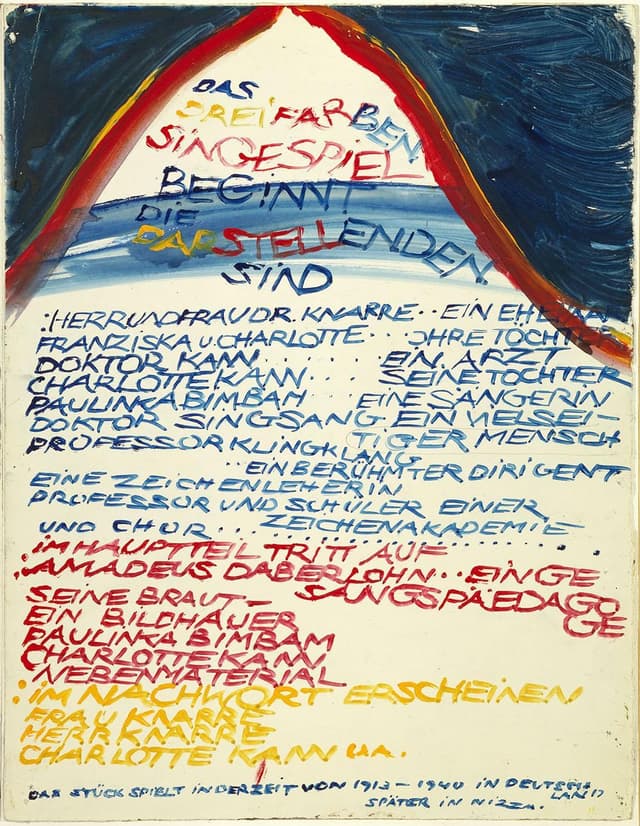 DAS
DREIFARBEN
SINGESPIEL
BEGINNT
DIE
DARSTELLENDEN
SIND
:HERR UND FRAU DR. KNARRE.. EIN EHEPAAR
FRANZISKA U. CHARLOTTE... IHRE TÖCHTER
DOKTOR KANN..... EIN ARZT
CHARLOTTE KANN.... SEINE TOCHTER
PAULINKA BIMBAM... EINE SÄNGERIN
DOKTOR SINGSANG EIN VIELSEI-
TIGER MENSCH
PROFESSOR KLINGKLANG
..EIN BERÜHMTER DIRIGENT
EINE ZEICHENLEHERIN
PROFESSOR UND SCHÜLER EINER
ZEICHENAKADEMIE
UND CHOR............
:IM HAUPTTEIL TRITT AUF
:AMADEUS DABERLOHN.. EIN GE
SANGSPÄEDAGO
GE
SEINE BRAUT-
EIN BILDHAUER
PAULINKA BIMBAM
CHARLOTTE KANN
NEBENMATERIAL
:IM NACHWORT ERSCHEINEN
FRAU KNARRE
HERR KNARRE
CHARLOTTE KANN U.A.
DAS STÜCK SPIELT IN DER ZEIT VON 1913 – 1940 IN DEUTSCH-
LAND
SPÄTER IN NIZZA.